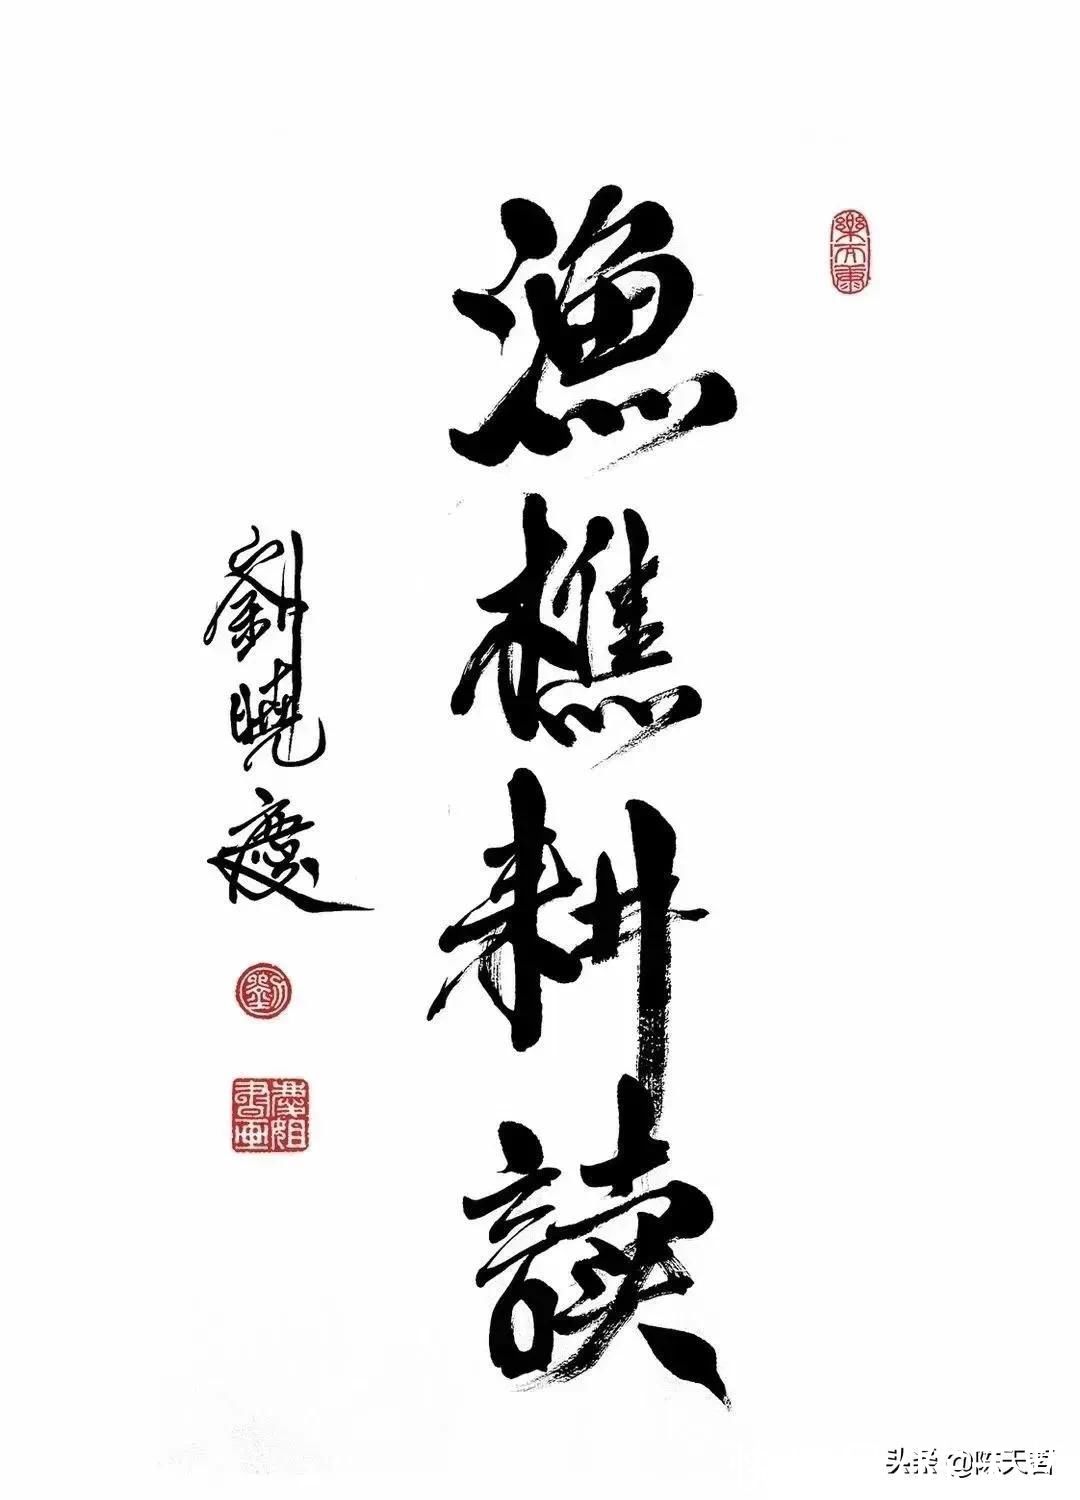 漁樵耕讀
劉曉慶
劉
慶姐書畫
头条 @陈天哲